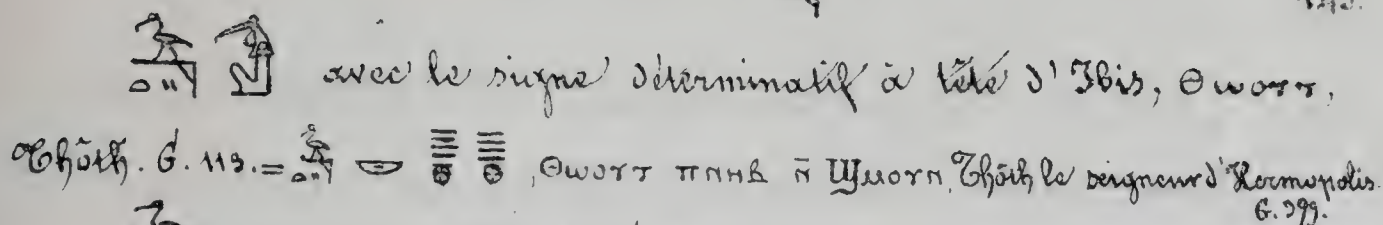 𓅝𓏏𓏭 𓁟 avec le signe déterminatif à tête d'Ibis, Ⲑⲱⲟⲩⲧ,
Thôth. G. 113. = 𓅝𓏏𓏭 𓎟 𓐁 𓐁, Ⲑⲱⲟⲩⲧ ⲡⲛⲏⲃ ⲛ̄ Ϣⲙⲟⲩⲛ, Thôth le seigneur d'Hermopolis.
G. 399.